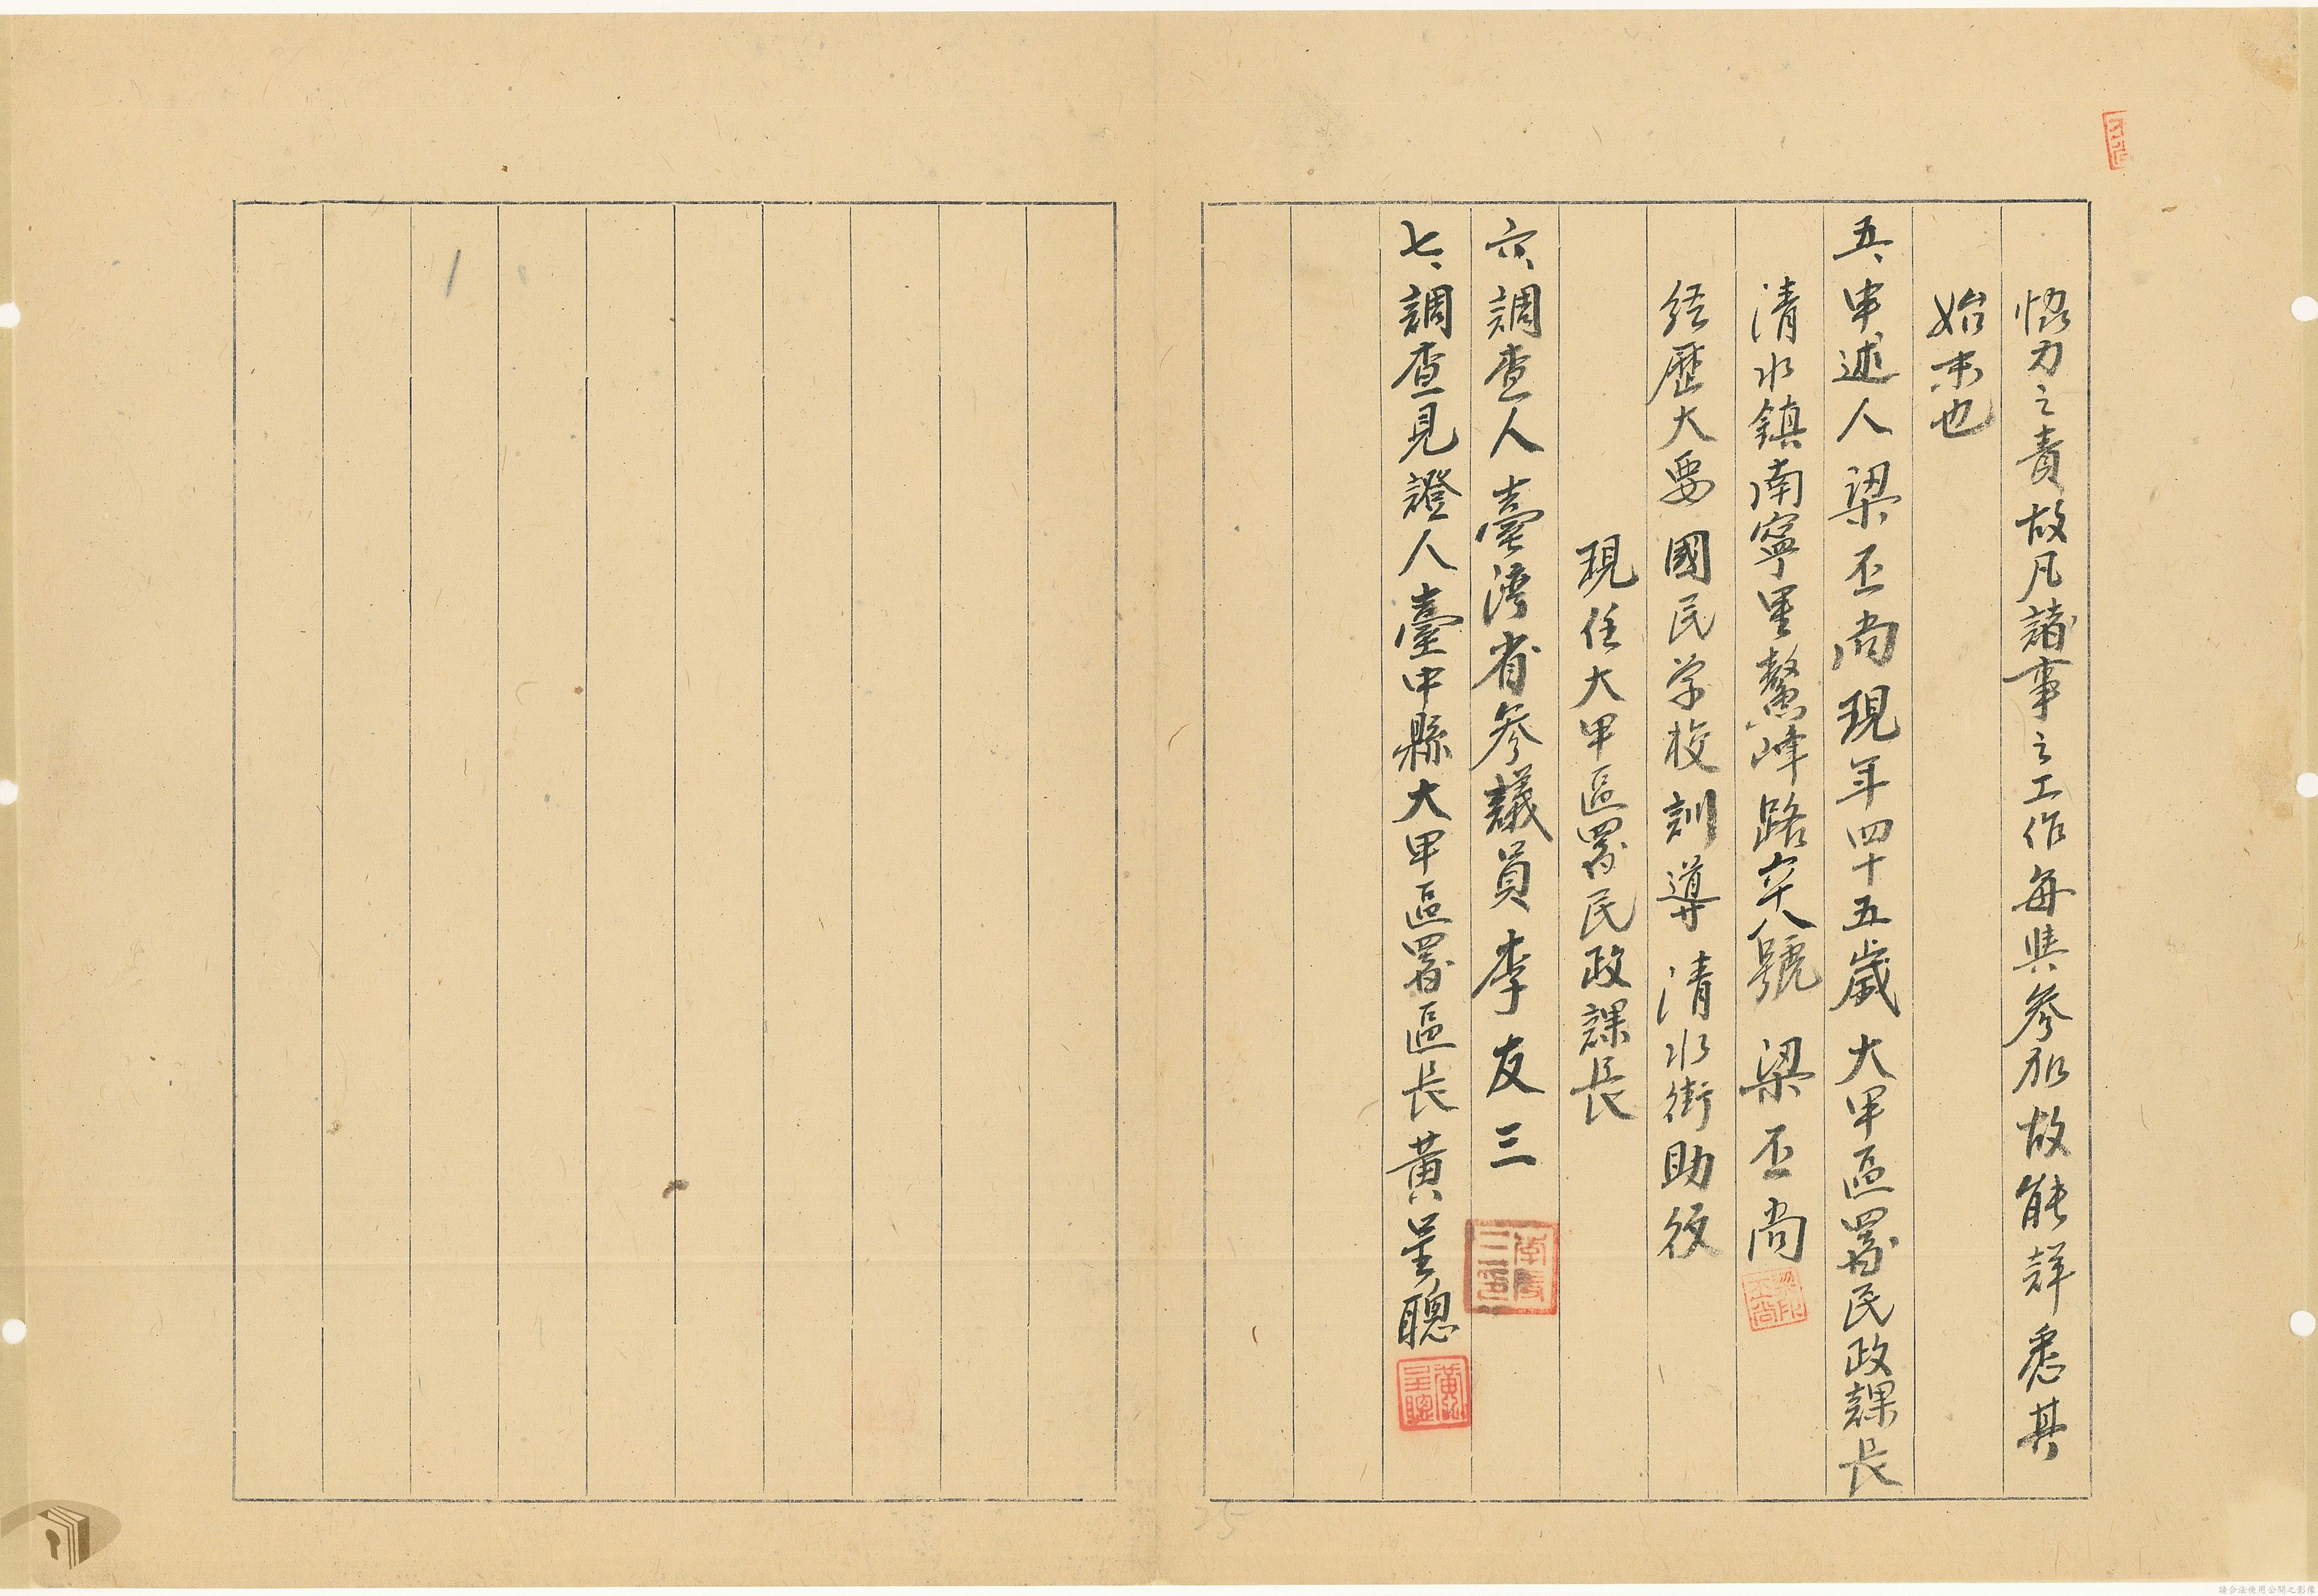 恊力之責故凡諸事之工作每與參加故能詳悉其
始末也
五、申述人梁丕尚現年四十五歲大甲區署民政課長
清水鎮南寧里鰲峰路六八號 梁丕尚
梁丕尚
经歷大要 國民学校訓導 清水街助役
現任大甲區署民政課長
六、調查人 臺湾省參議員 李友三
七、調查見證人臺中縣大甲區署區長黄呈聰
黃呈聰
請合法使用公開之影像